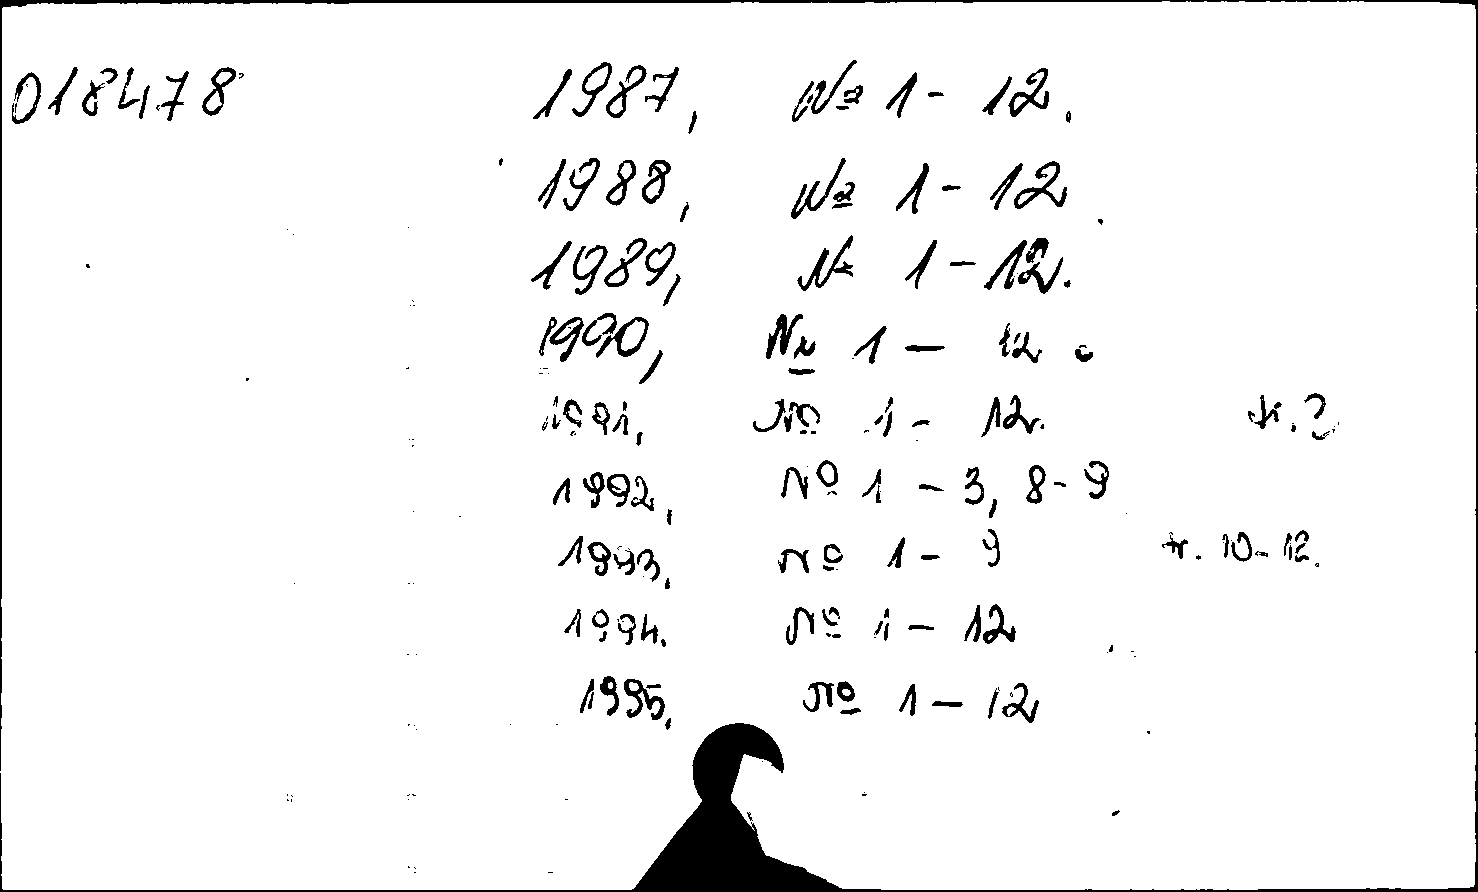 018478 1987, № 1 - 12.
1988, № 1 - 12
1989, № 1 - 12.
1990, № 1 - 12.
1991, № 1 - 12.
1992, № 1 - 3, 8-9
1993, № 1 - 9 10-12.
1994. № 1 - 12
1995, № 1 - 12